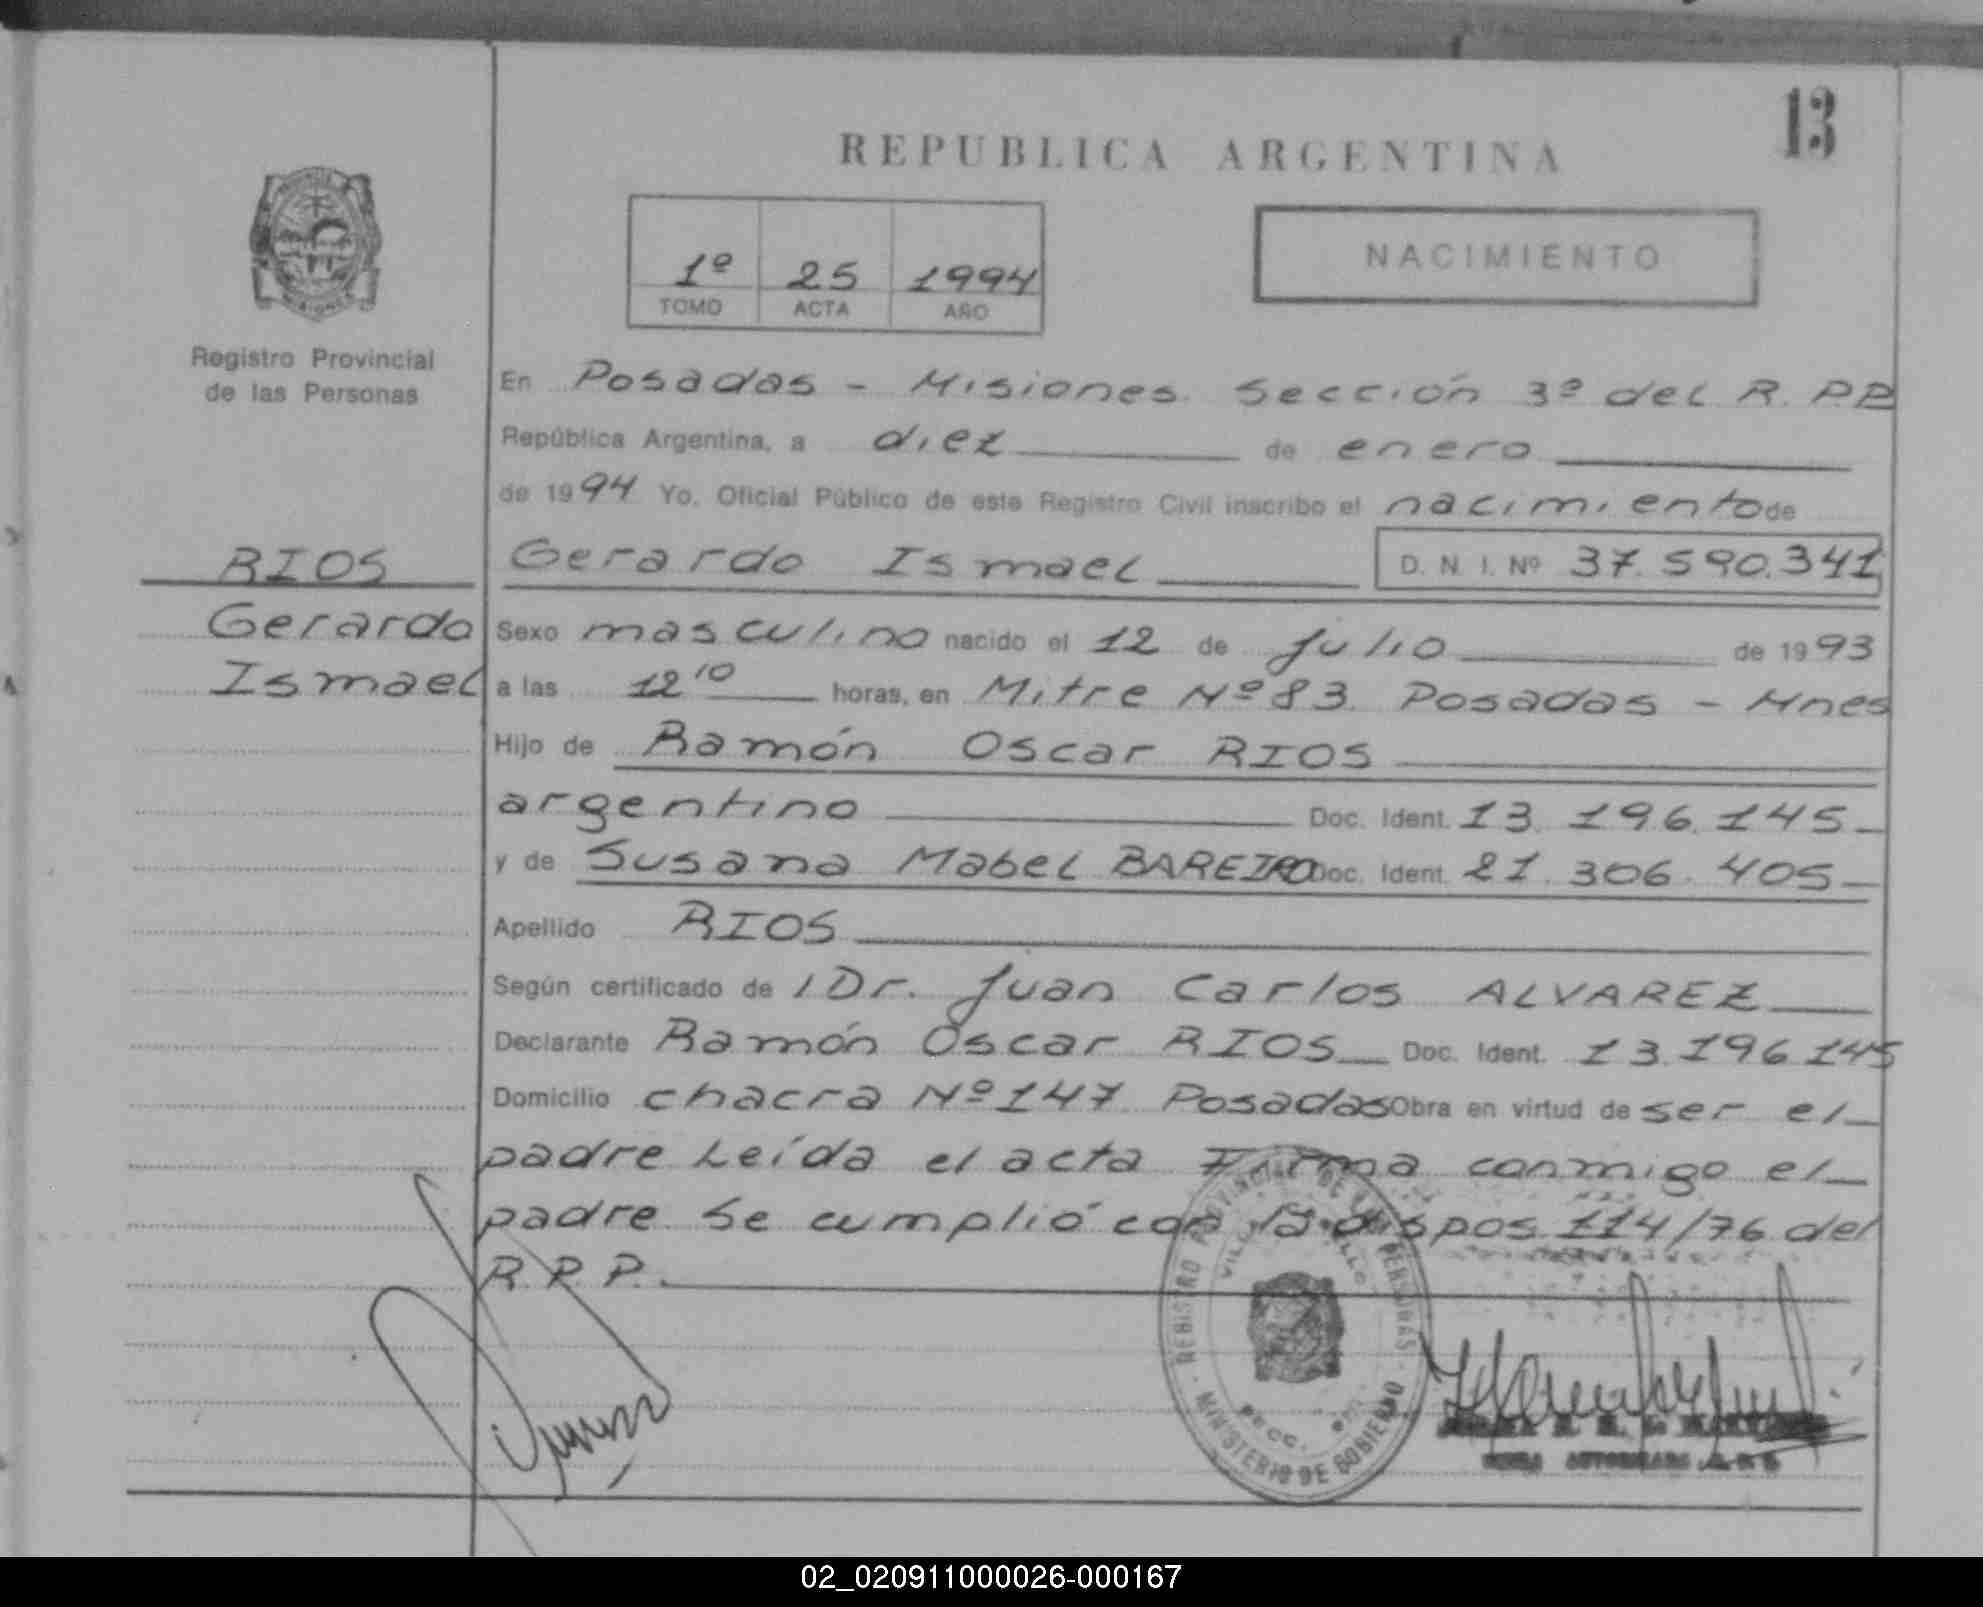 13
REPUBLICA ARGENTINA
1º 25 1994
TOMO ACTA AÑO
NACIMIENTO
PROVINCIA
MISIONES
Registro Provincial
de las Personas
RIOS
Gerardo
Ismael
En Posadas - Misiones. Sección 3ª del R. P.P
República Argentina, a diez de enero
de 1994 Yo, Oficial Público de este Registro Civil inscribo el nacimiento de
Gerardo Ismael D. N. I. Nº 37.590.341
Sexo masculino nacido el 12 de julio de 1993
a las 12 10 horas, en Mitre Nº 83. Posadas - Mnes
Hijo de Ramón Oscar RIOS
argentino Doc. Ident. 13. 196. 145-
y de Susana Mabel BAREIRO Doc. Ident. 21. 306. 405-
Apellido RIOS
Según certificado de l Dr. Juan Carlos ALVAREZ
Declarante Ramón Oscar RIOS Doc. Ident. 13.196.145
Domicilio chacra Nº 147 Posadas Obra en virtud de ser el
padre Leída el acta Firma conmigo el
padre Se cumplió con la dispos 114/76 del
R.R.P.
REGISTRO PROVINCIAL DE LAS PERSONAS
MINISTERIO DE GOBIERNO
02_020911000026-000167